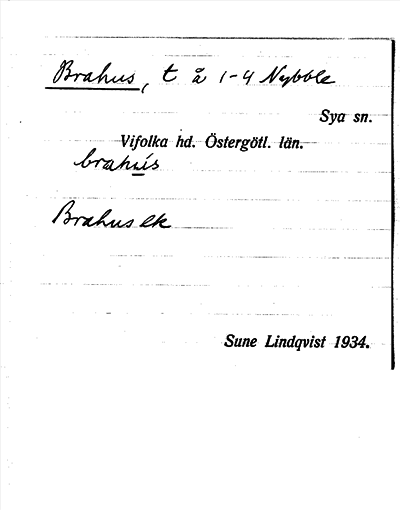 Brahus, t å 1-4 Nybble
Sya sn.
Vifolka hd. Östergötl. län.
brahùs
Brahus ek
Sune Lindqvist 1934.